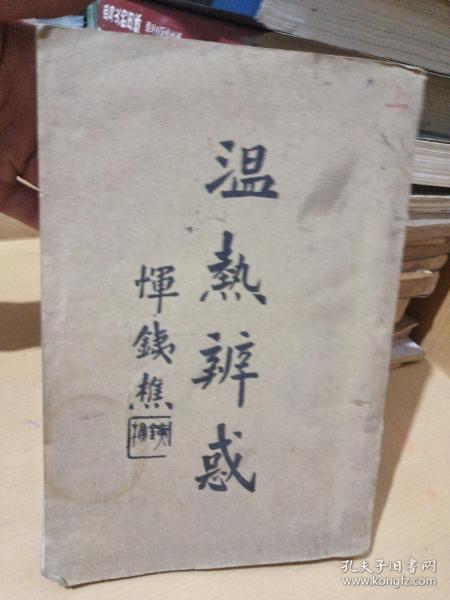 温熱辨惑
惲鐵樵
鐵樵
上
孔夫子旧书网
www.kongfz.com